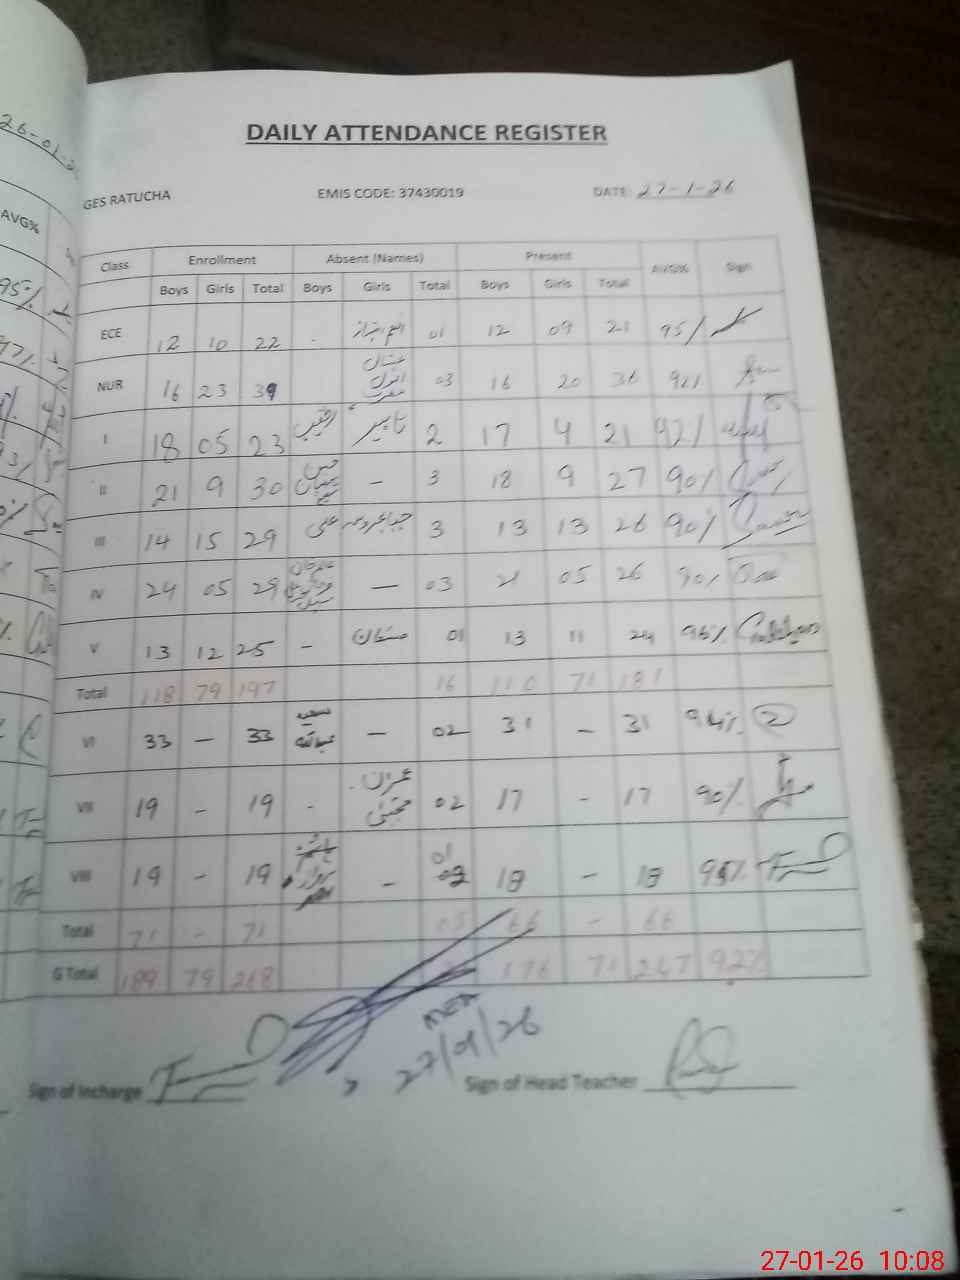 26-01-2
AVG%
95%
DAILY ATTENDANCE REGISTER
GES RATUCHA EMIS CODE: 37430019 DATE: 27-1-26
Class Enrollment Absent (Names) Present AVG% Sign
Boys Girls Total Boys Girls Total Boys Girls Total
ECE 12 10 22 . 01 12 09 21 95%
NUR 16 23 39 03 16 20 36 92%
I 18 05 23 2 17 4 21 92%
II 21 9 30 — 3 18 9 27 90%
III 14 15 29 علی 3 13 13 26 90%
IV 24 05 29 — 03 21 05 26 90%
V 13 12 25 - 01 13 11 24 96%
Total 118 79 197 16 110 71 181
VI 33 — 33 عبداللہ — 02 31 — 31 94%
VII 19 - 19 - عمران مجتبیٰ 02 17 - 17 90%
VIII 19 - 19 - 01 18 - 18 95%
Total 71 - 71 05 66 - 66
G Total 189 79 268 176 71 247 92%
MEA
27/01/26
Sign of Incharge Sign of Head Teacher
27-01-26 10:08